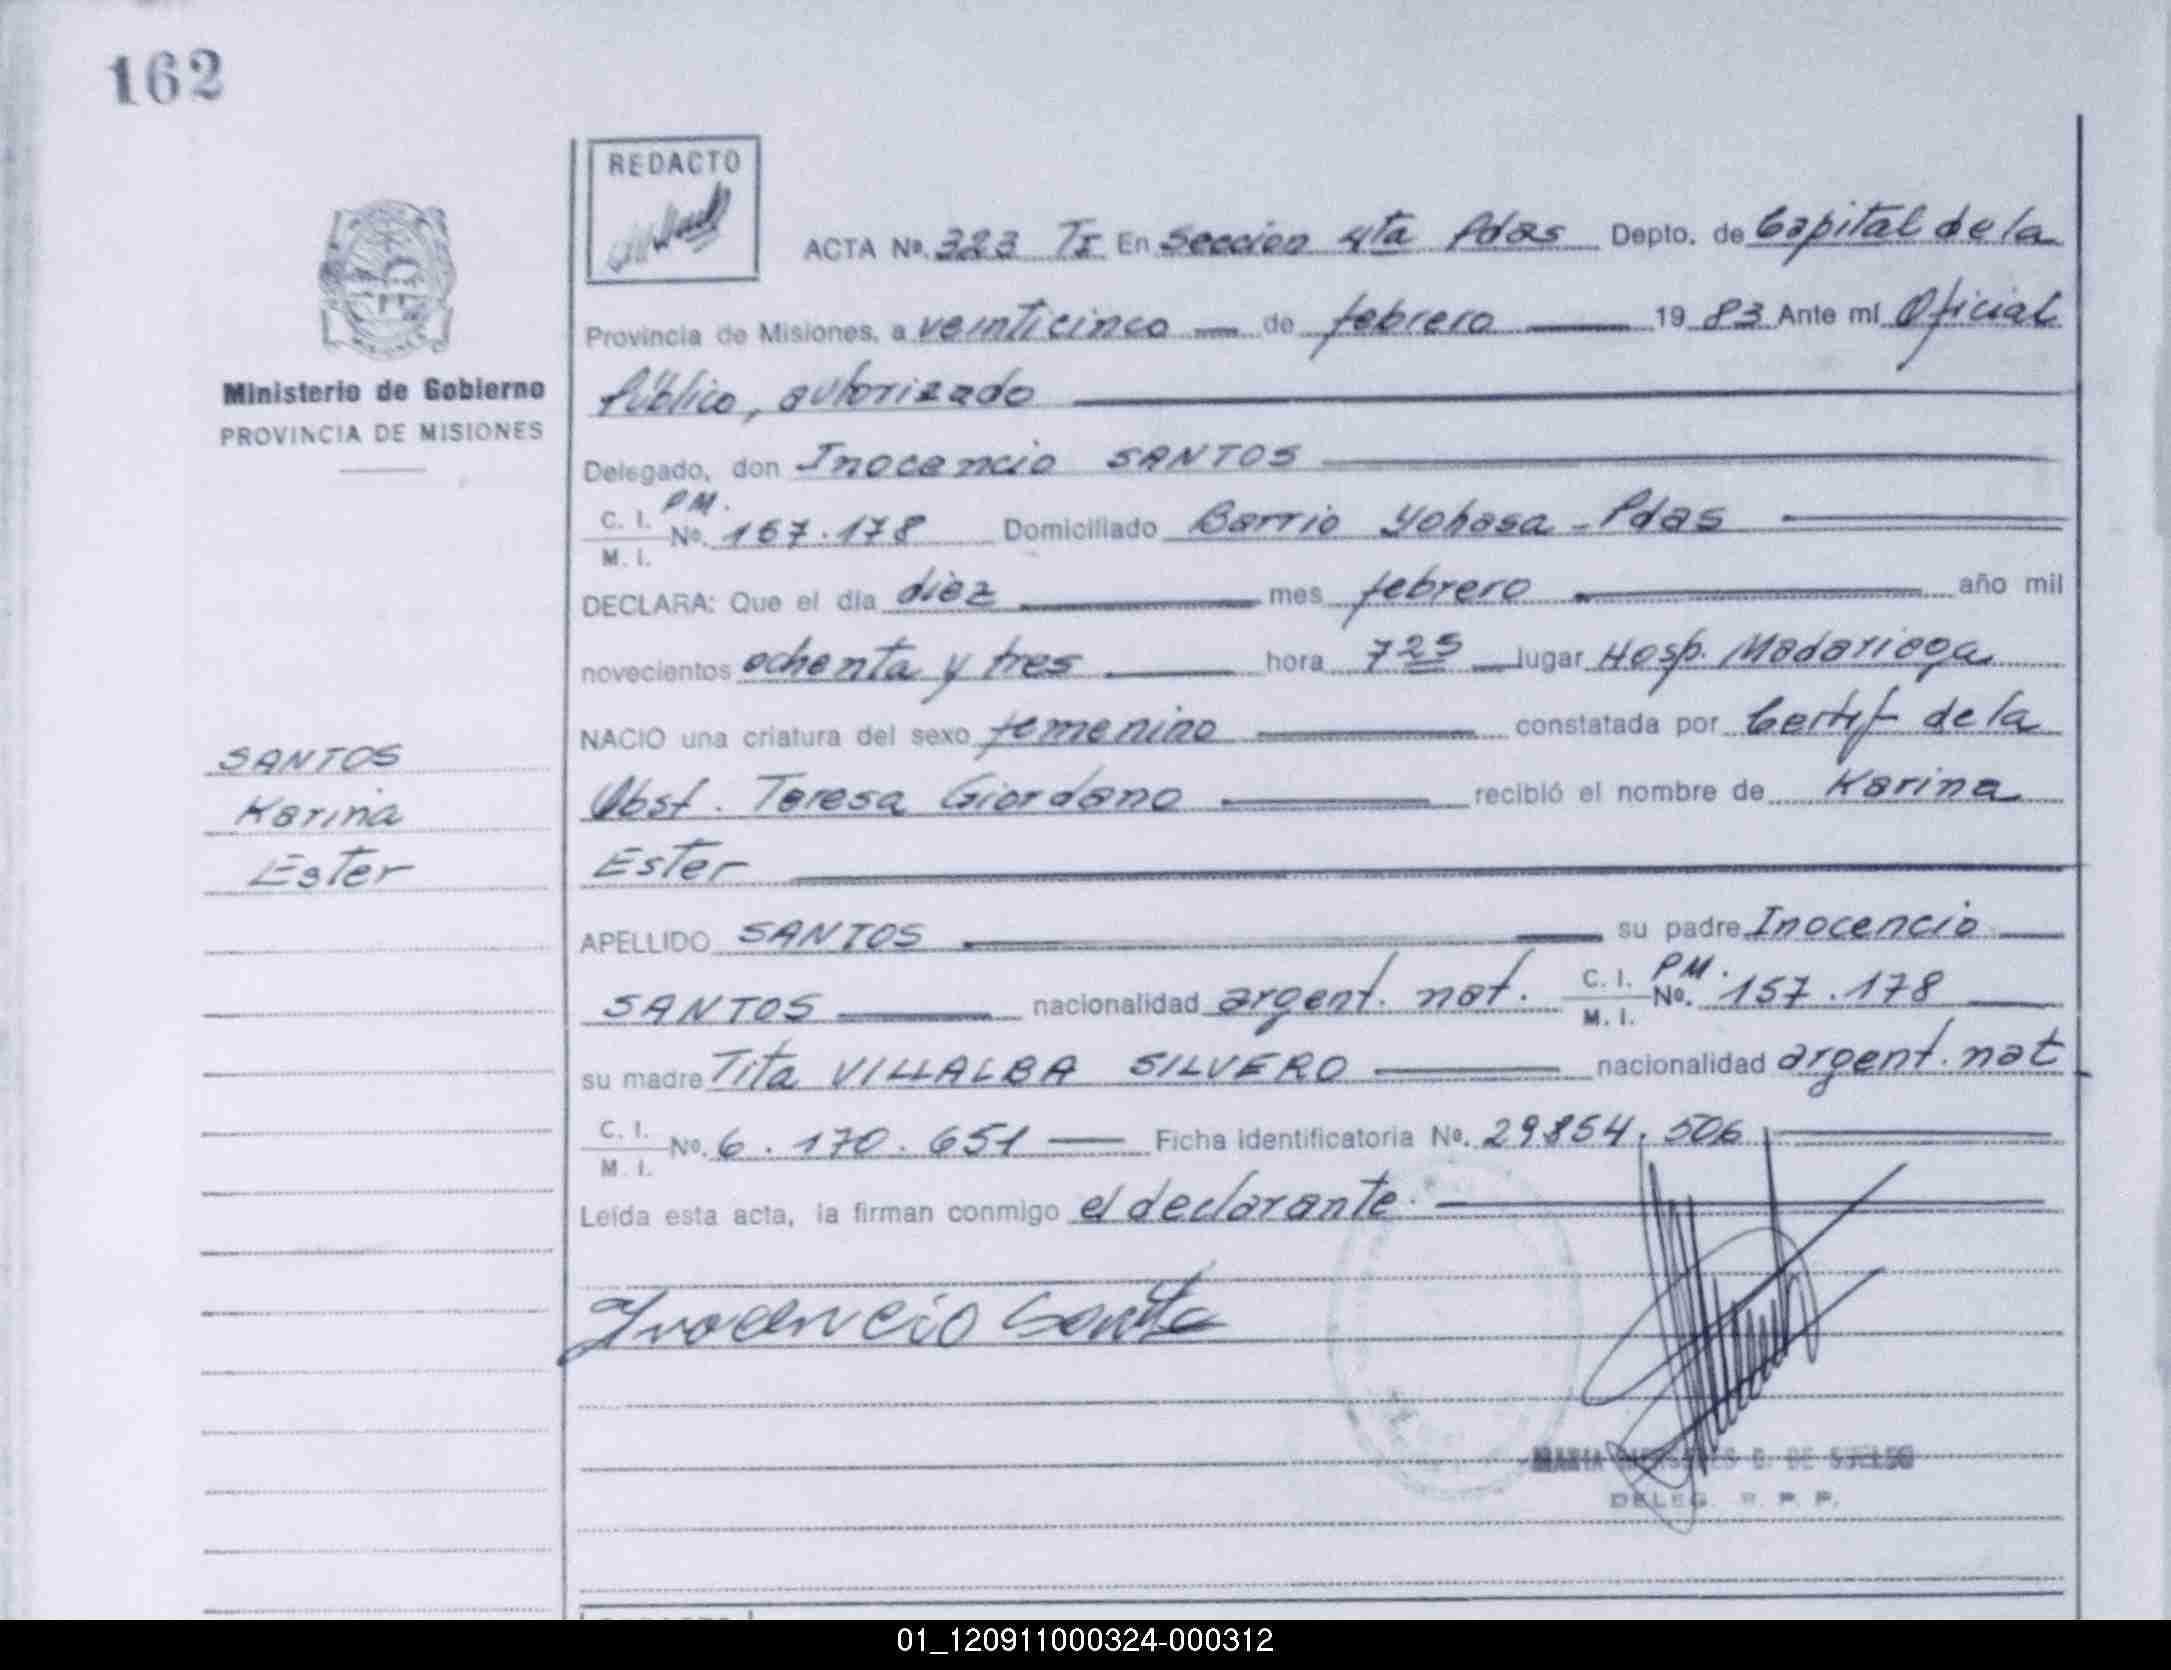 162
REDACTO
ACTA Nº. 323 TI En Seccion 4ta Pdas Depto. de Capital de la
Provincia de Misiones, a veinticinco de febrero 19 83 Ante mí Oficial
Público, autorizado
Ministerio de Gobierno
PROVINCIA DE MISIONES
Delegado, don Inocencio SANTOS
C. I. PM.
M. I. Nº. 157.178 Domiciliado Barrio Yohasa - Pdas
DECLARA: Que el día diez mes febrero año mil
novecientos ochenta y tres hora 7 25 lugar Hosp. Madariaga
NACIO una criatura del sexo femenino constatada por Certif de la
Obst. Teresa Giordano recibió el nombre de Karina
Ester
SANTOS
Karina
Ester
APELLIDO SANTOS su padre Inocencio
SANTOS nacionalidad argent. nat. C. I. PM. M. I. Nº. 157.178
su madre Tita VILLALBA SILVERO nacionalidad argent. nat
C. I. M. I. Nº. 6.170.651 Ficha identificatoria Nº. 29854.506
Leída esta acta, la firman conmigo el declarante.
Inocencio Santos
MARIA DE
DELEG. R. P. P.
01_120911000324-000312